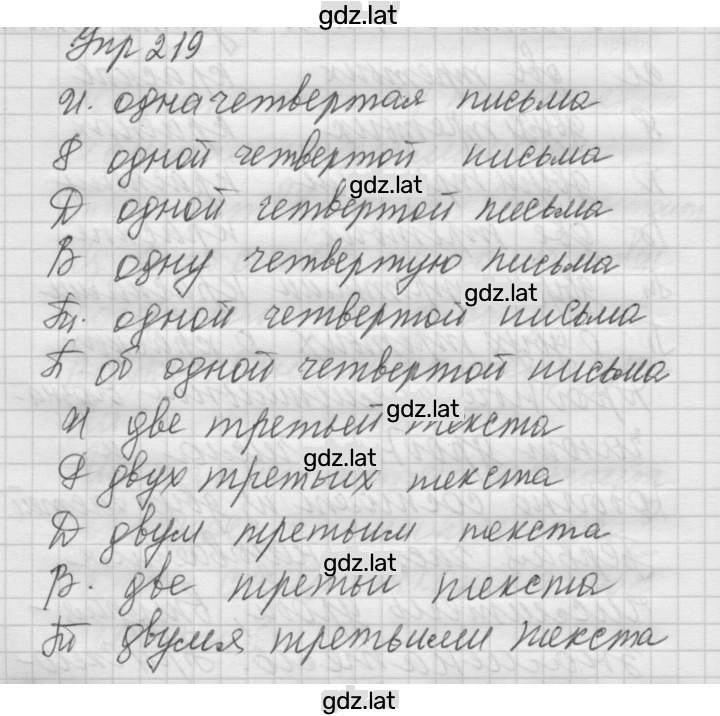 gdz.lat
Упр 219
И. одна четвертая письма
Р одной четвертой письма
gdz.lat
Д одной четвертой письма
В одну четвертую письма
gdz.lat
Тв. одной четвертой письма
П об одной четвертой письма
gdz.lat
И две третьей текста
gdz.lat
Р двух третьих текста
Д двум третьим текста
gdz.lat
В. две третьи текста
Тв двумя третьими текста
gdz.lat